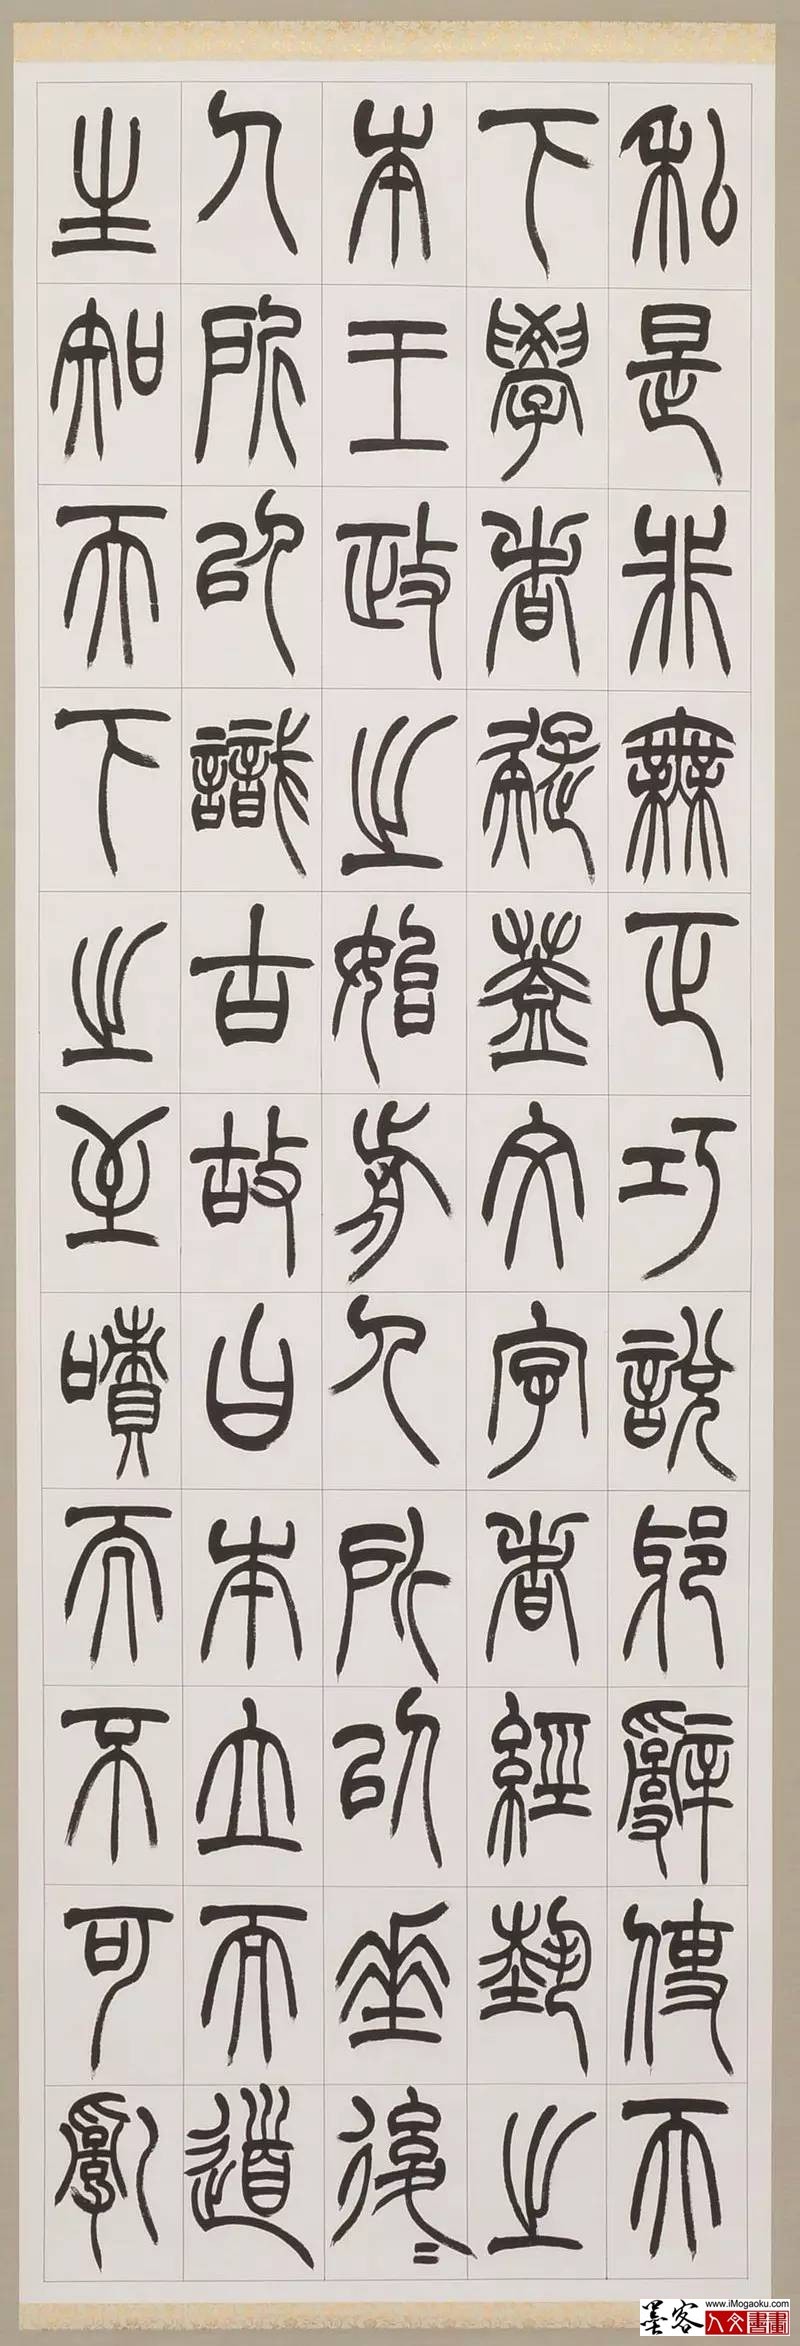 私是非無正巧說邪辭使天
下學者疑蓋文字者經埶之
本王政之始前人所以垂後〻
人所以識古故曰本立而道
生知天下之至嘖而不可亂
www.iMogaoku.com
墨客人文書畫